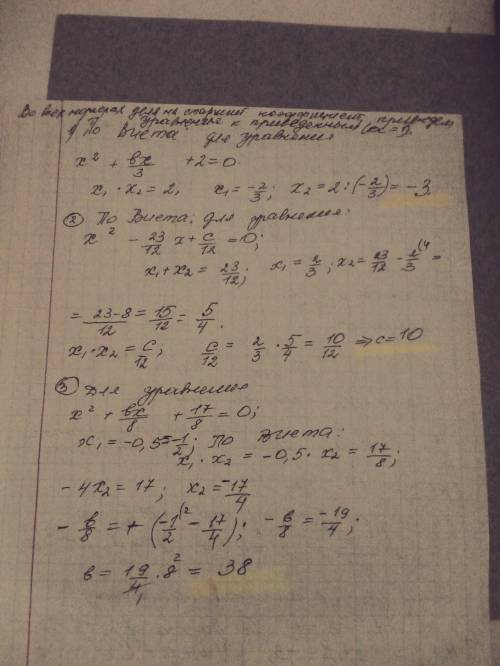 Во всех номерах деля на старший коэффициент, приведем
уравнение к приведенным (a=1).
1) По Виета для уравнения
x² + вx/3 + 2 = 0.
x₁ · x₂ = 2, x₁ = -2/3; x₂ = 2 : (-2/3) = -3.
② По Виета; для уравнения:
x² - 23/12 x + c/12 = 0;
x₁ + x₂ = 23/12; x₁ = 2/3; x₂ = 23/12 - 2/3 ⁽⁴ =
= 23-8/12 = 15/12 = 5/4.
x₁ · x₂ = c/12; c/12 = 2/3 · 5/4 = 10/12 ⇒ c = 10
③ Для уравнения
x² + вx/8 + 17/8 = 0;
x₁ = -0,5 = -1/2; По Виета:
x₁ · x₂ = -0,5 · x₂ = 17/8;
-4x₂ = 17; x₂ = -17/4
- в/8 = + (-1/2 ⁽² - 17/4); - в/8 = -19/4;
в = 19/4₁ · 8² = 38